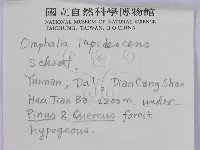 國立自然科學博物館
NATIONAL MUSEUM OF NATURAL SCIENCE
TAICHUNG, TAIWAN, R.O.CHINA
Omphalia lapidescens
Schroet.
Yunnan, Dali. Dian Cang Shan
Hua Tian Ba 2200m. under
Pinus & Quercus forest
hypogeous.